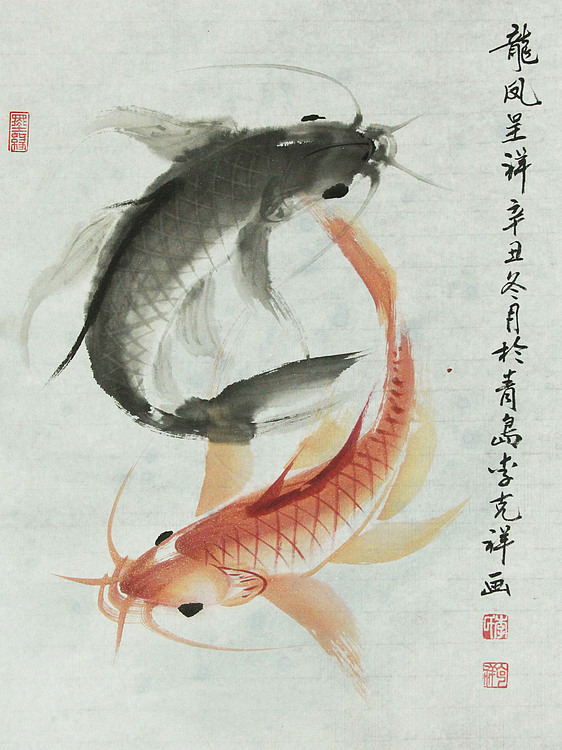 龍凤呈祥 辛丑冬月於青島李克祥画